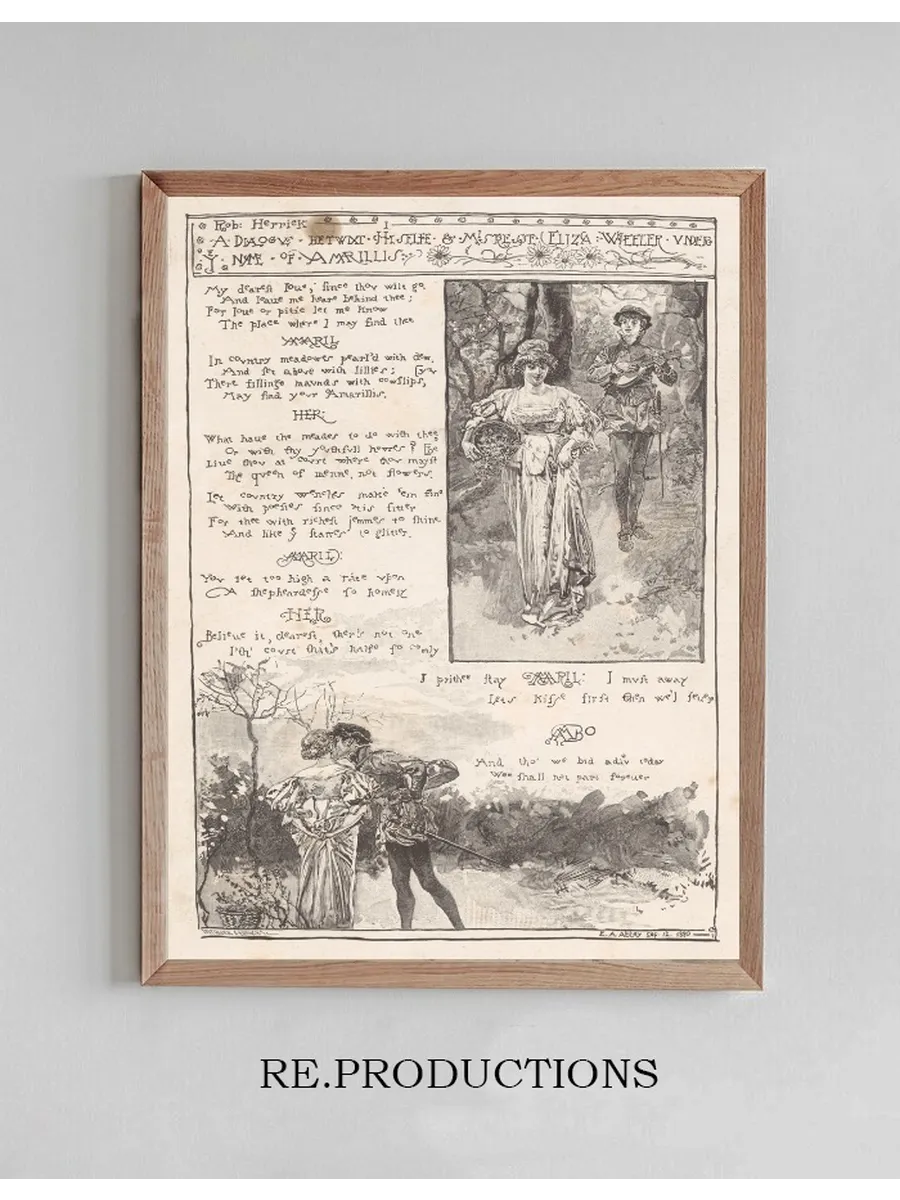 Rob: Herrick
A DIALOGVE · BETWIXT · HIMSELFE · & · MISTRESSE · ELIZA : WHEELER · VNDER
Yͤ · NAME · OF · AMARILLIS:
My dearest loue, since thov wilt go,
And leaue me heare behind thee;
For loue or pitie let me know
The place where I may find thee
AMARIL
In country meadowes pearl'd with dew,
And set aboue with lillies;
There fillinge maunds with cowslips, you
May find your Amarillis.
HER:
What haue the meades to do with thee
Or with thy youthfull howres?
Liue thou at court where thou mayst be
The queen of menne, not flowers.
Let country wenches make 'em fine
With posies since tis fitter
For thee with richest jemmes to shine
And like yͤ starres to glitter.
AMARIL:
You set too high a rate vpon
A shepheardesse so homely
HER
Belieue it, dearest, ther's not one
I'th' court that's halfe so comly
I prithee stay AMARIL: I must away
Lets kisse first then we'l seuer
AMBO
And tho' we bid adiv today
Wee shall not part foreuer
E. A. ABBEY 1880
RE.PRODUCTIONS